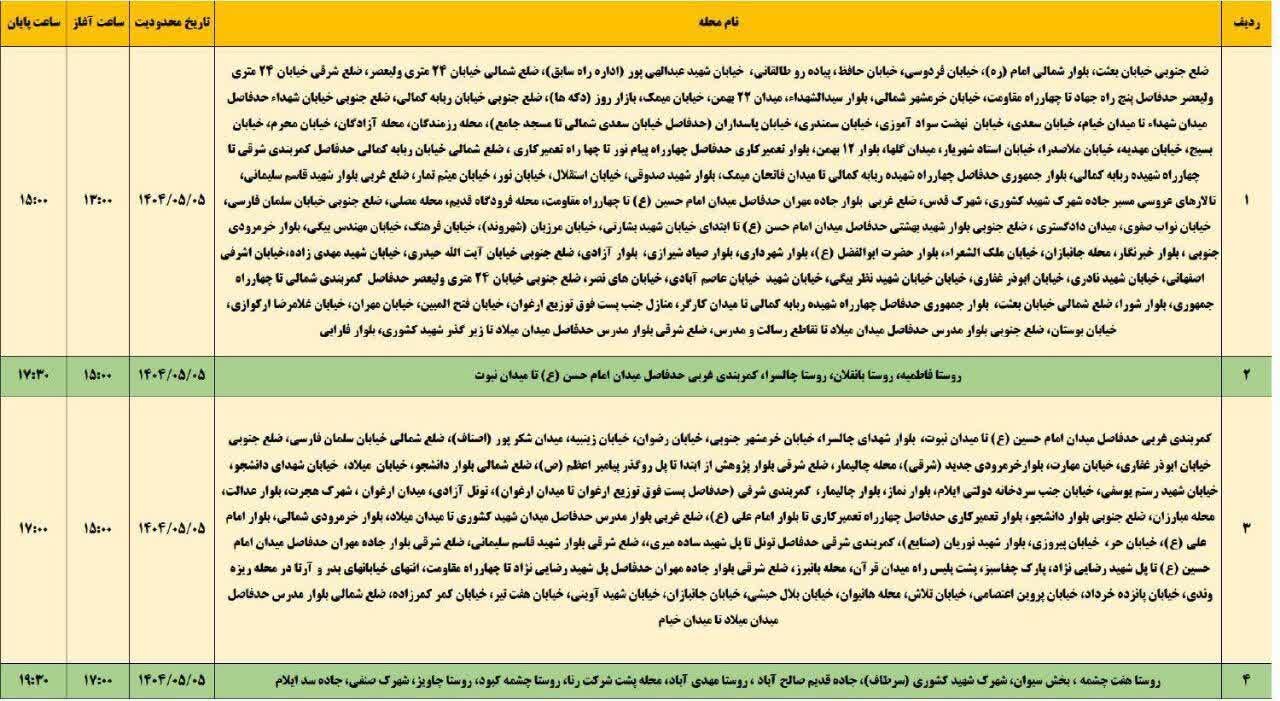 ردیف نام محله تاریخ محدودیت ساعت آغاز ساعت پایان
ضلع جنوبی خیابان بعثت، بلوار شمالی امام (ره)، خیابان فردوسی، خیابان حافظ، پیاده رو طالقانی، خیابان شهید عبدالهی پور (اداره راه سابق)، ضلع شمالی خیابان ۲۴ متری ولیعصر، ضلع شرقی خیابان ۲۴ متری
ولیعصر حدفاصل پنج راه جهاد تا چهارراه مقاومت، خیابان خرمشهر شمالی، بلوار سیدالشهداء، میدان ۲۲ بهمن، خیابان میمک، بازار روز (دکه ها)، ضلع جنوبی خیابان ربابه کمالی، ضلع جنوبی خیابان شهداء حدفاصل
میدان شهداء تا میدان خیام، خیابان سعدی، خیابان نهضت سواد آموزی، خیابان سمندری، خیابان پاسداران (حدفاصل خیابان سعدی شمالی تا مسجد جامع)، محله رزمندگان، محله آزادگان، خیابان محرم، خیابان
بسیج، خیابان مهدیه، خیابان ملاصدرا، خیابان استاد شهریار، میدان گلها، بلوار ۱۲ بهمن، بلوار تعمیرکاری حدفاصل چهارراه پیام نور تا چها راه تعمیرکاری ، ضلع شمالی خیابان ربابه کمالی حدفاصل کمربندی شرقی تا
چهارراه شهیده ربابه کمالی، بلوار جمهوری حدفاصل چهارراه شهیده ربابه کمالی تا میدان فاتحان میمک، بلوار شهید صدوقی، خیابان استقلال، خیابان نور، خیابان میثم تمار، ضلع غربی بلوار شهید قاسم سلیمانی،
۱ تالارهای عروسی مسیر جاده شهرک شهید کشوری، شهرک قدس، ضلع غربی بلوار جاده مهران حدفاصل میدان امام حسین (ع) تا چهارراه مقاومت، محله فرودگاه قدیم، محله مصلی، ضلع جنوبی خیابان سلمان فارسی، ۱۴۰۴/۰۵/۰۵ ۱۳:۰۰ ۱۵:۰۰
خیابان نواب صفوی، میدان دادگستری ، ضلع جنوبی بلوار شهید بهشتی حدفاصل میدان امام حسن (ع) تا ابتدای خیابان شهید بشارتی، خیابان مرزبان (شهروند)، خیابان فرهنگ، خیابان مهندس بیگی، بلوار خرمرودی
جنوبی ، بلوار خبرنگار، محله جانبازان، خیابان ملک الشعراء، بلوار حضرت ابوالفضل (ع)، بلوار شهرداری، بلوار صیاد شیرازی، بلوار آزادی، ضلع جنوبی خیابان آیت الله حیدری، خیابان شهید مهدی زاده،خیابان اشرفی
اصفهانی، خیابان شهید نادری، خیابان ابوذر غفاری، خیابان خیابان شهید نظر بیگی، خیابان شهید خیابان عاصم آبادی، خیابان های نصر، ضلع جنوبی خیابان ۲۴ متری ولیعصر حدفاصل کمربندی شمالی تا چهارراه
جمهوری، بلوار شورا، ضلع شمالی خیابان بعثت، بلوار جمهوری حدفاصل چهارراه شهیده ربابه کمالی تا میدان کارگر، منازل جنب پست فوق توزیع ارغوان، خیابان فتح المبین، خیابان مهران، خیابان غلامرضا ارکوازی،
خیابان بوستان، ضلع جنوبی بلوار مدرس حدفاصل میدان میلاد تا تقاطع رسالت و مدرس، ضلع شرقی بلوار مدرس حدفاصل میدان میلاد تا زیر گذر شهید کشوری، بلوار فارابی
۲ روستا فاطمیه، روستا بانقلان، روستا چالسرا، کمربندی غربی حدفاصل میدان امام حسن (ع) تا میدان نبوت ۱۴۰۴/۰۵/۰۵ ۱۵:۰۰ ۱۷:۳۰
کمربندی غربی حدفاصل میدان امام حسین (ع) تا میدان نبوت، بلوار شهدای چالسرا، خیابان خرمشهر جنوبی، خیابان رضوان، خیابان زینبیه، میدان شکر پور (اصناف)، ضلع شمالی خیابان سلمان فارسی، ضلع جنوبی
خیابان ابوذر غفاری، خیابان مهارت، بلوارخرمرودی جدید (شرقی)، محله چالیمار، ضلع شرقی بلوار پژوهش از ابتدا تا پل روگذر پیامبر اعظم (ص)، ضلع شمالی بلوار دانشجو، خیابان میلاد، خیابان شهدای دانشجو،
خیابان شهید رستم یوسفی، خیابان جنب سردخانه دولتی ایلام، بلوار نماز، بلوار چالیمار، کمربندی شرفی (حدفاصل پست فوق توزیع ارغوان تا میدان ارغوان)، تونل آزادی، میدان ارغوان ، شهرک هجرت، بلوار عدالت،
۳ محله مبارزان، ضلع جنوبی بلوار دانشجو، بلوار تعمیرکاری حدفاصل چهارراه تعمیرکاری تا بلوار امام علی (ع)، ضلع غربی بلوار مدرس حدفاصل میدان شهید کشوری تا میدان میلاد، بلوار خرمرودی شمالی، بلوار امام ۱۴۰۴/۰۵/۰۵ ۱۵:۰۰ ۱۷:۰۰
علی (ع)، خیابان حر، خیابان پیروزی، بلوار شهید نوریان (صنایع)، کمربندی شرقی حدفاصل تونل تا پل شهید ساده میری،، ضلع شرقی بلوار شهید قاسم سلیمانی، ضلع شرقی بلوار جاده مهران حدفاصل میدان امام
حسین (ع) تا پل شهید رضایی نژاد، پارک چغاسبز، پشت پلیس راه میدان قرآن، محله بانبرز، ضلع شرقی بلوار جاده مهران حدفاصل پل شهید رضایی نژاد تا چهارراه مقاومت، انتهای خیابانهای بدر و آرتا در محله ریزه
وندی، خیابان پانزده خرداد، خیابان پروین اعتصامی، خیابان تلاش، محله هانیوان، خیابان بلال حبشی، خیابان جانبازان، خیابان شهید آوینی، خیابان هفت تیر، خیابان کمر کمرزاده، ضلع شمالی بلوار مدرس حدفاصل
میدان میلاد تا میدان خیام
۴ روستا هفت چشمه ، بخش سیوان، شهرک شهید کشوری (سرطاف)، جاده قدیم صالح آباد ، روستا مهدی آباد، محله پشت شرکت رنا، روستا چشمه کبود، روستا چاویز، شهرک صنفی، جاده سد ایلام ۱۴۰۴/۰۵/۰۵ ۱۷:۰۰ ۱۹:۳۰